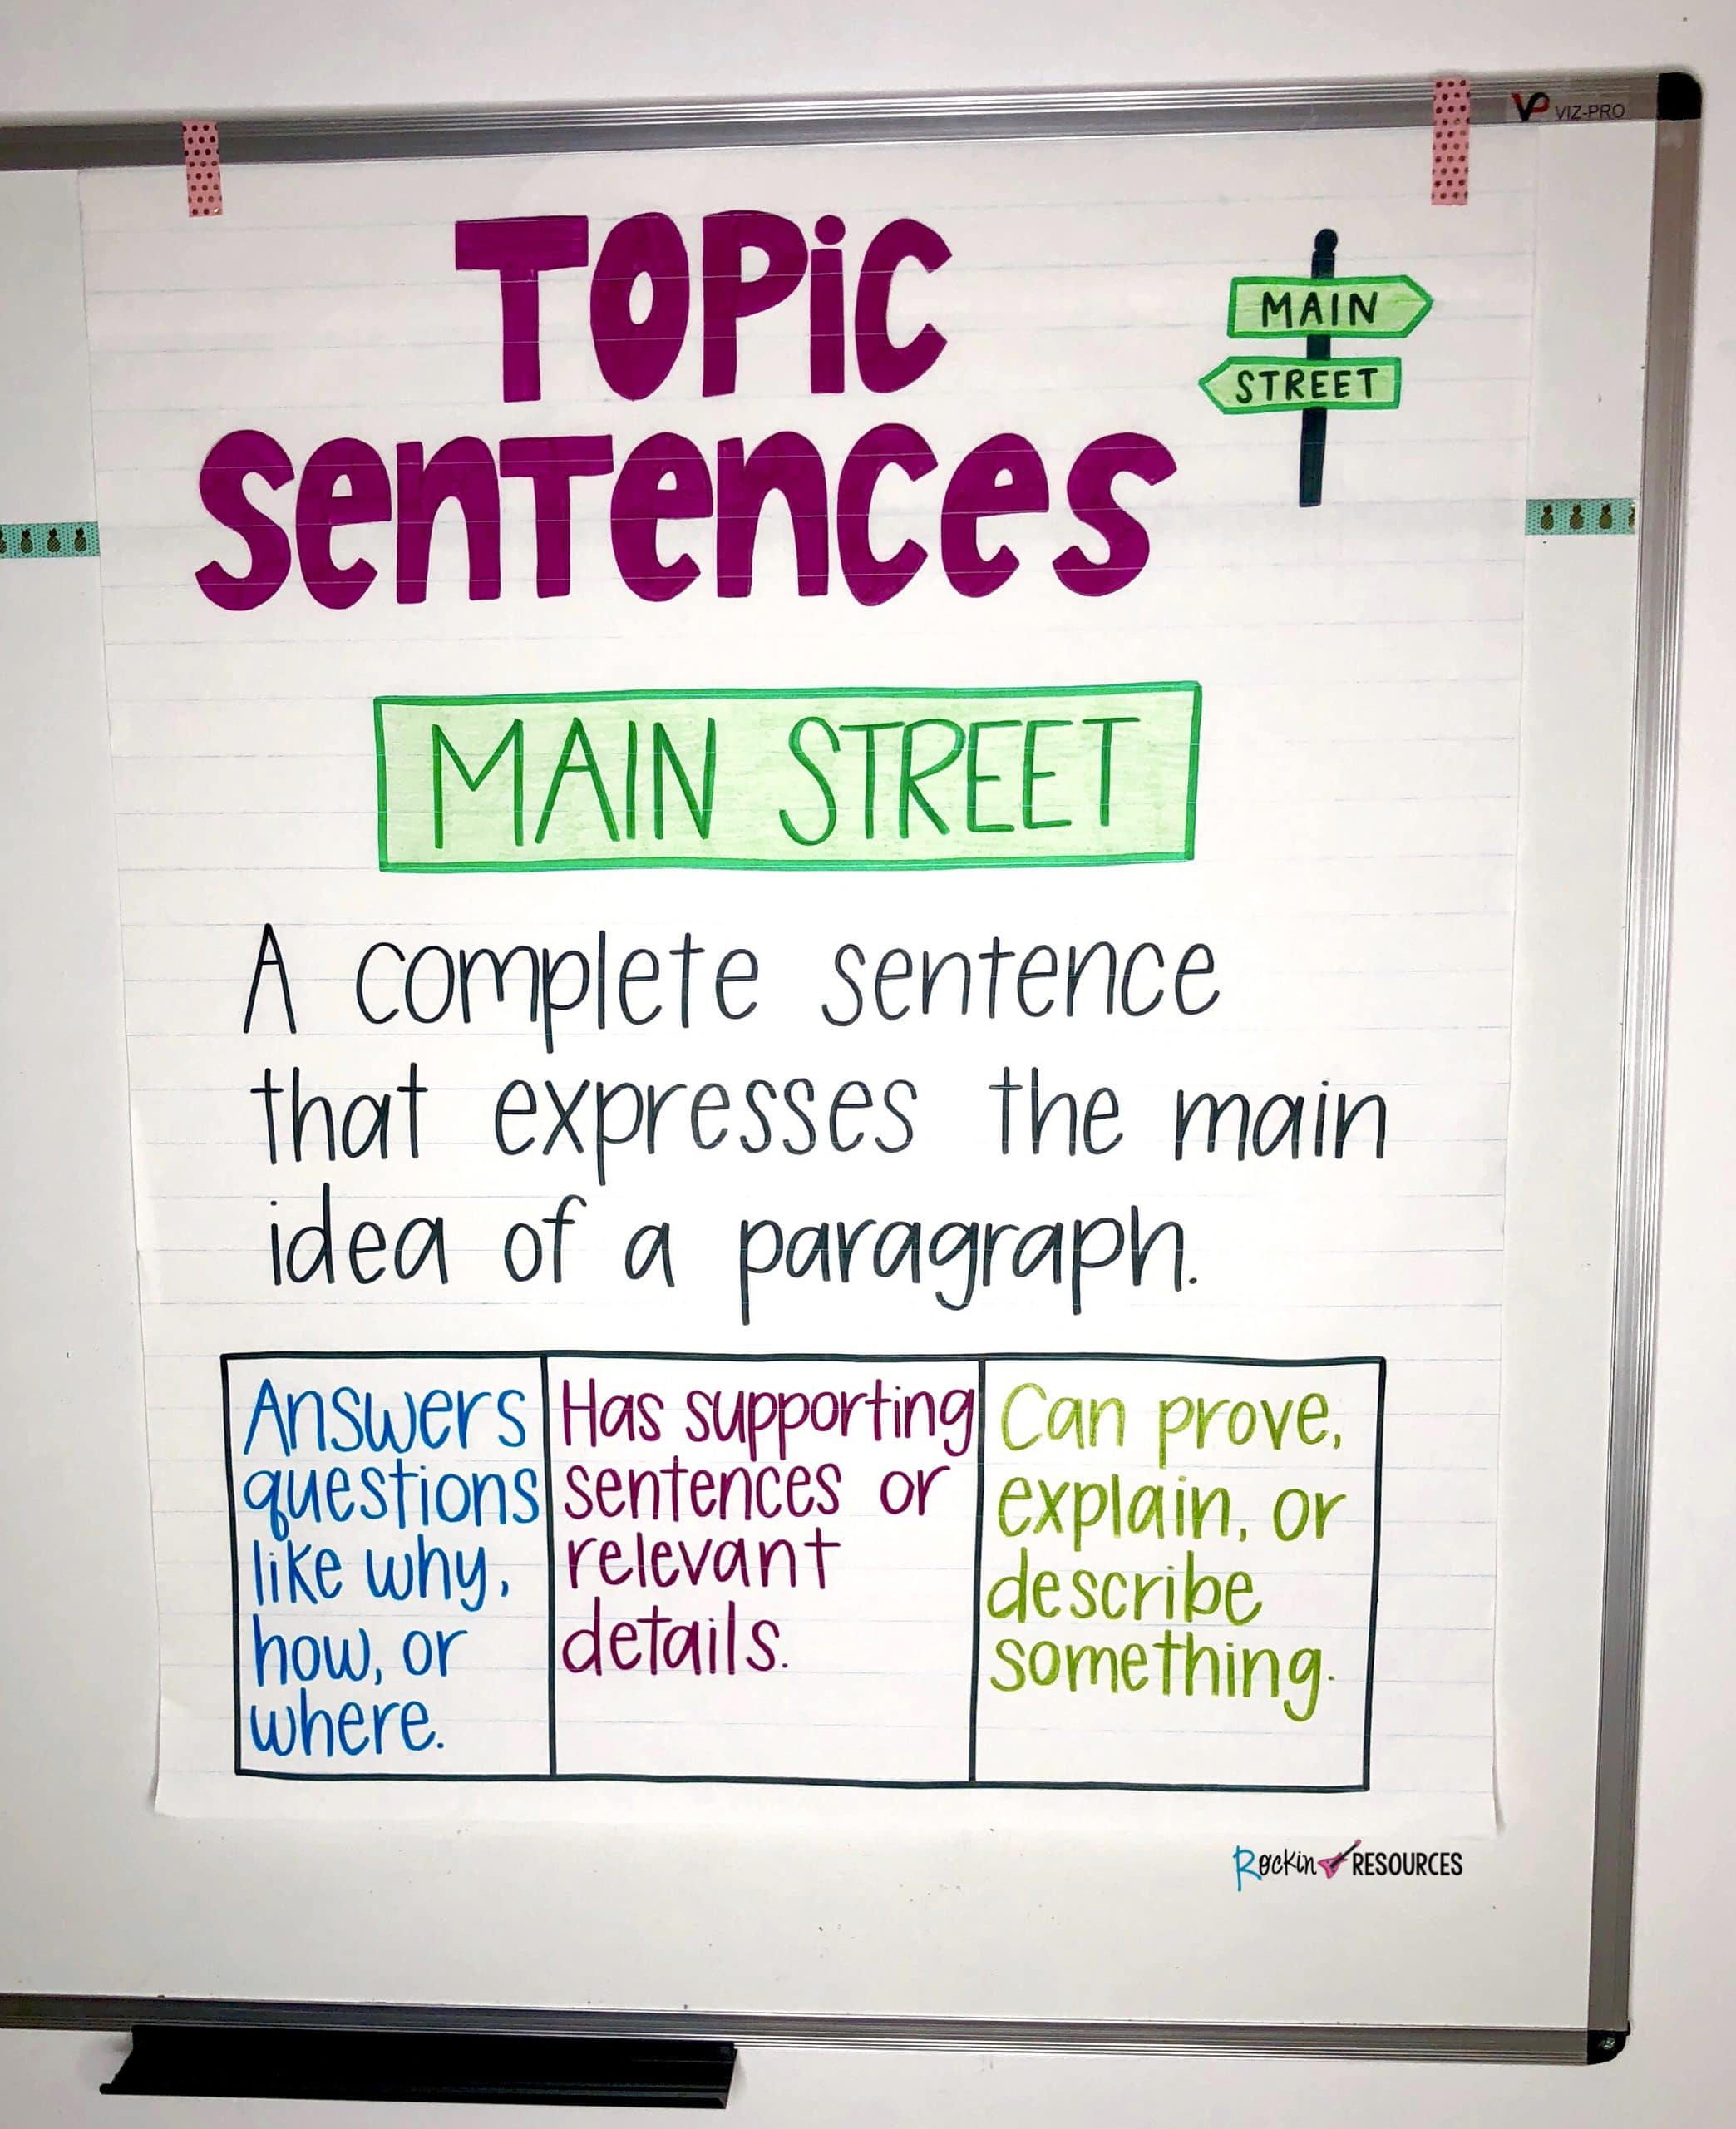 VP VIZ-PRO
TOPiC
SenTenCeS
MAIN
STREET
MAIN STREET
A complete sentence
that expresses the main
idea of a paragraph.
Answers
questions
like why,
how, or
where.
Has supporting
sentences or
relevant
details.
Can prove,
explain, or
describe
something.
Rockin RESOURCES